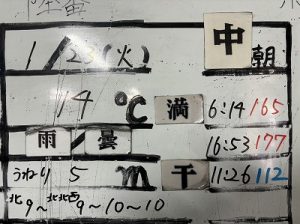 1/23(火) 中 朝
14 ℃ 満 6:14 165
雨/曇 16:53 177
うねり 5 m 干 11:26 112
北 9~ 北北西 9~10~10